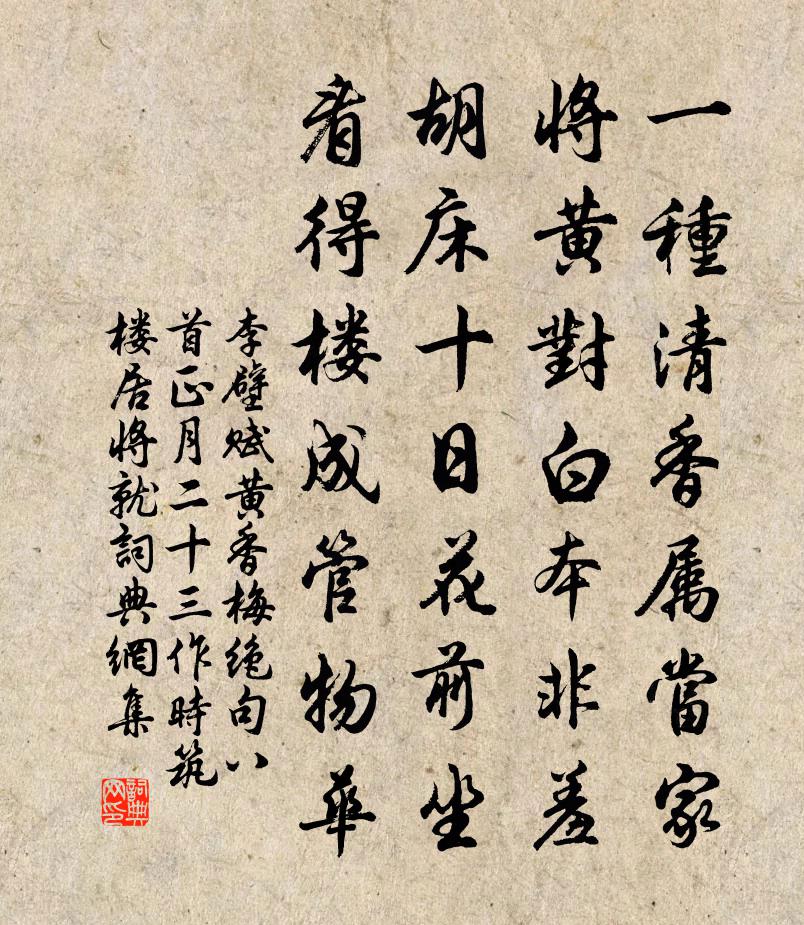 一種清香属當家
將黄對白本非羞
胡床十日花前坐
看得楼成管物華
李壁赋黄香梅绝句八
首正月二十三作時筑
楼居將就詞典網集
詞典网印